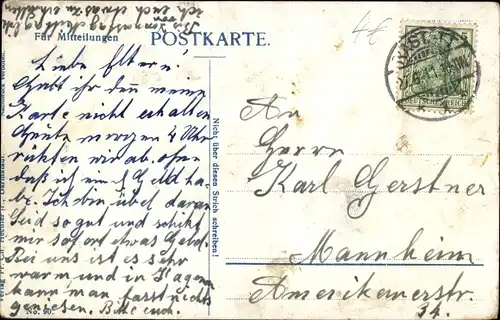 Für Mitteilungen
POSTKARTE.
4€
DEUTSCHES REICH
Liebe Eltern!
Habt ihr denn meine
Karte nicht erhalten
Heute morgen 4 Uhr
rückten wir ab. ohne
daß ich ein & Geld ha-
be. Ich bin übel daran
Seid so gut und schikt
mir sofort etwas Geld.
Bei uns ist es sehr
warm und in Hagenau
kann man fast nichts
geniesen. Bitte euch.
ich euch etwas zu erhalten
Nicht über diesen Strich schreiben!
An
Herrn
Karl Gerstner
Mannheim
Amerikanerstr.
34.
No. 90.